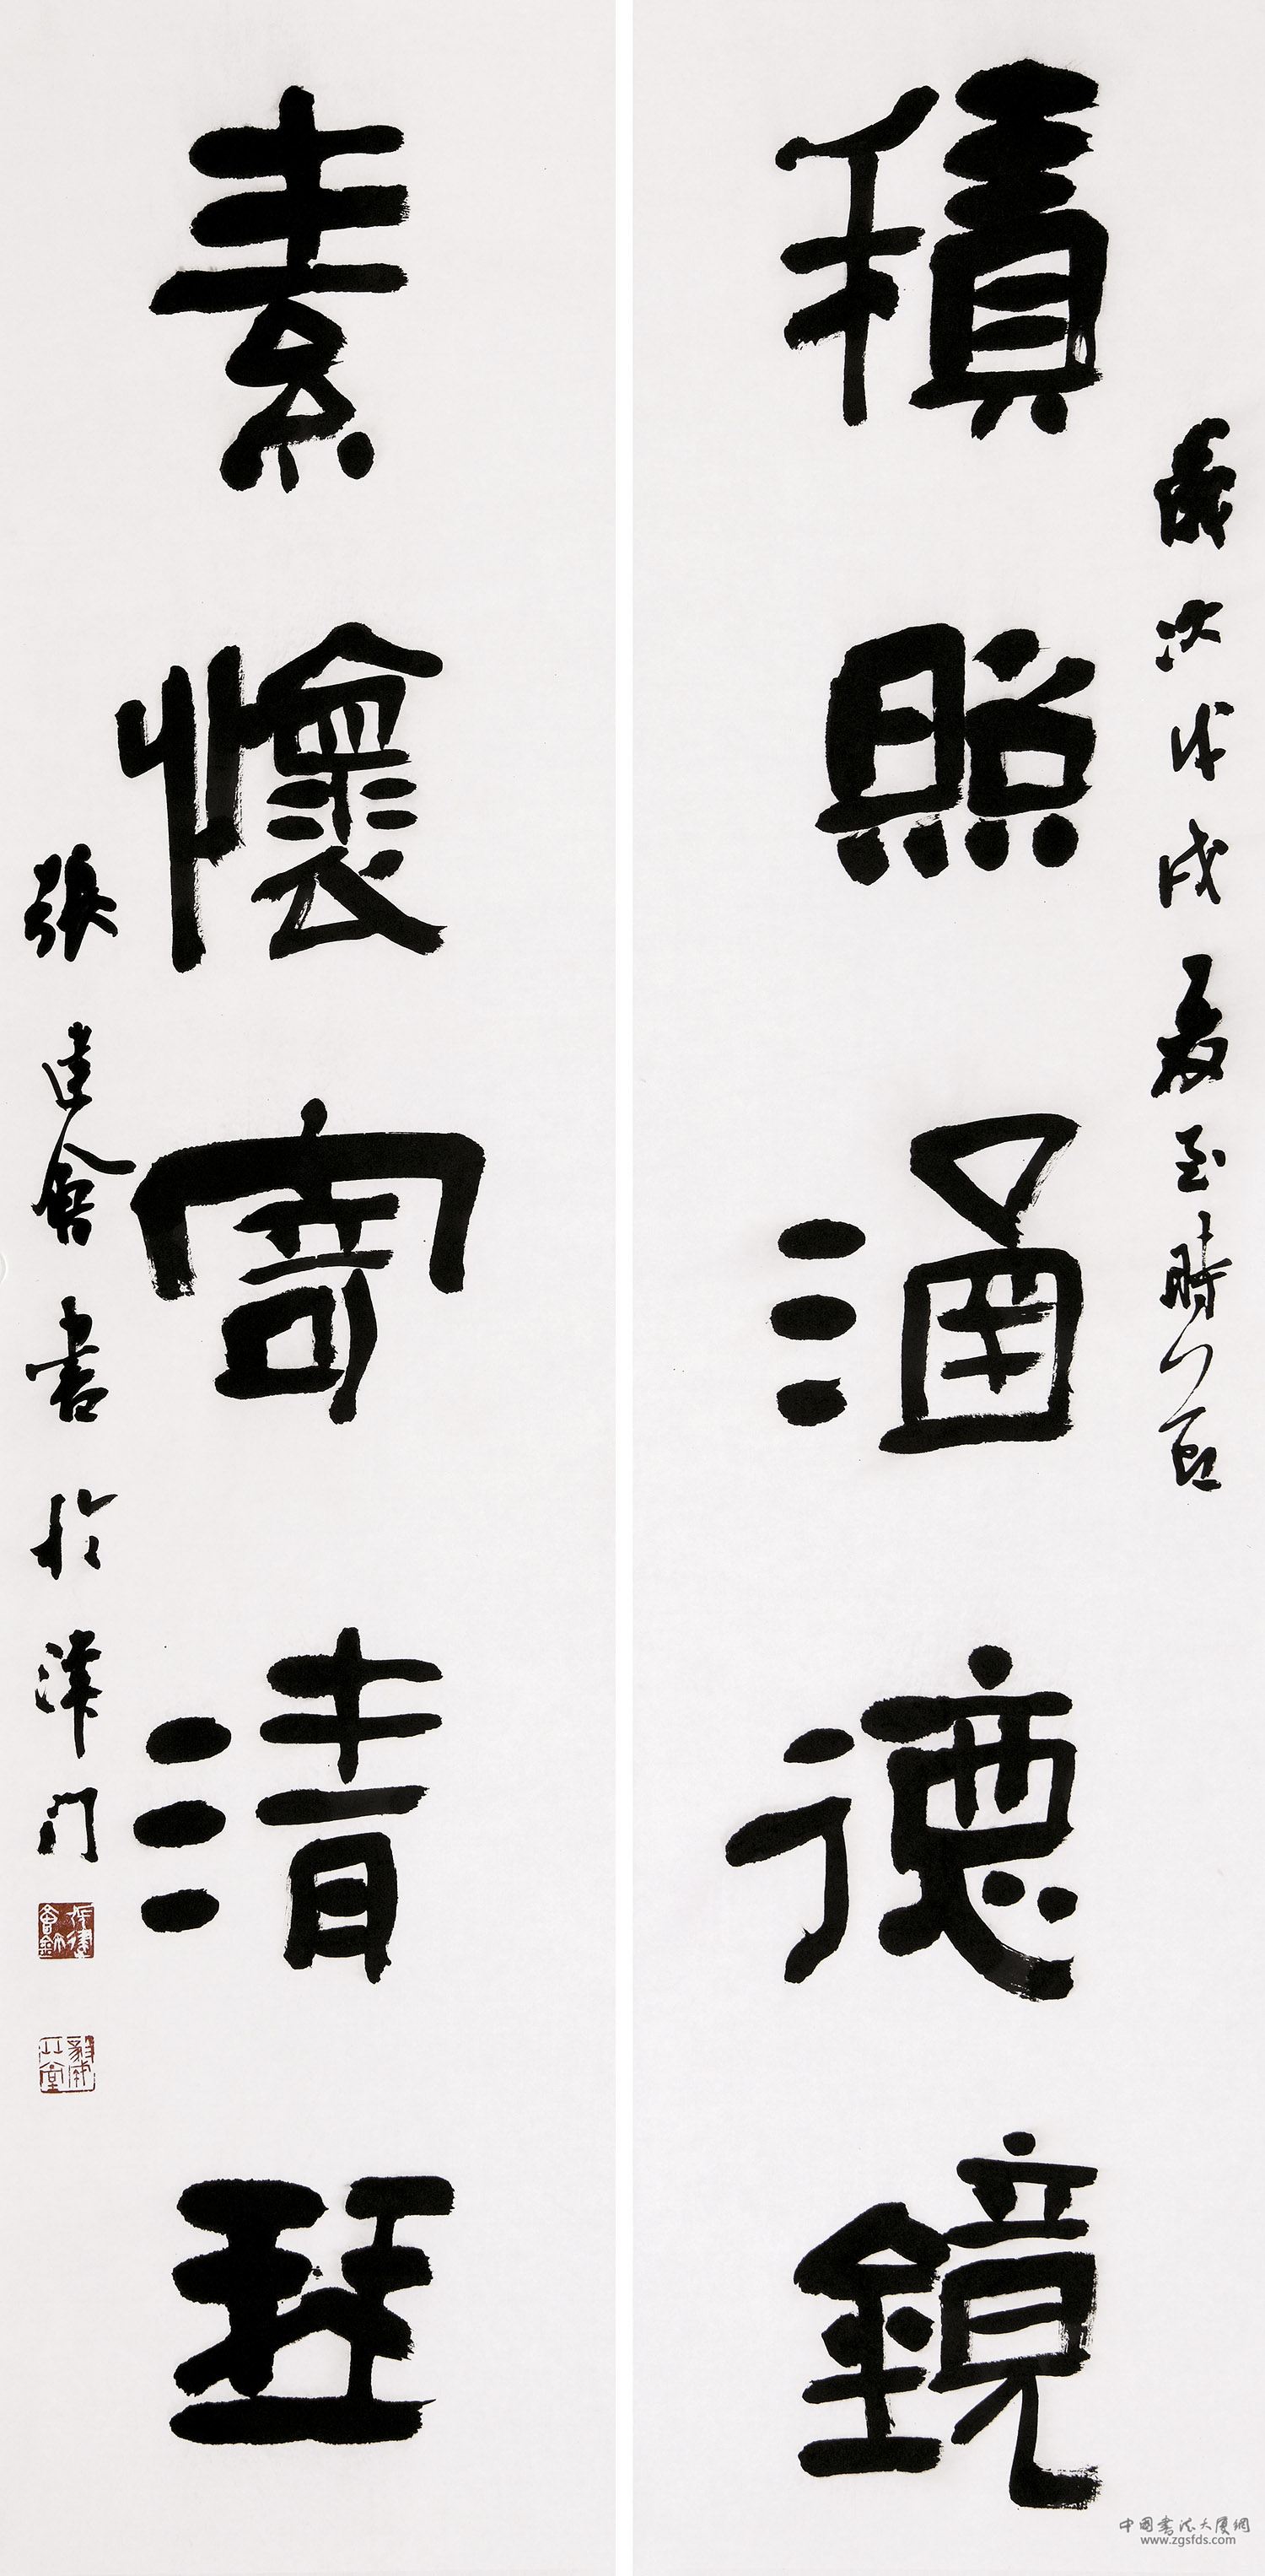 積照涵德鏡
歲次戊戌夏至時節
素懷寄清琴
張建會書於津門
張建會鉨
中國書法大廈網
www.zgsfds.com